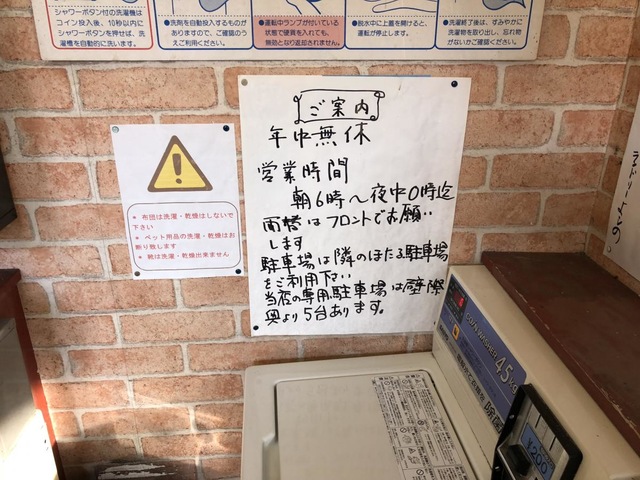 シャワーボタン付の洗濯機は
コイン投入後、10秒以内に
シャワーボタンを押せば、洗
濯槽を自動的に洗います。
●洗剤を自動投入するものが
ありますので、ご確認のう
えご利用ください。
●運転中ランプが付いている
状態で硬貨を入れても、
無効となり返却されません。
●脱水中に上蓋を開けると、
運転が停止します。
●洗濯終了後は、すみやかに
洗濯物を取り出し、忘れ物
がないかご確認ください。
ご案内
年中無休
営業時間
朝6時〜夜中0時迄
両替はフロントでお願い
します
駐車場は隣のほたる駐車場
をご利用下さい
当店の専用駐車場は壁際
奥より5台あります。
* 布団は洗濯・乾燥はしないで
下さい
* ペット用品の洗濯・乾燥はお
断り致します
* 靴は洗濯・乾燥出来ません
COIN WASHER 4.5kg
¥200